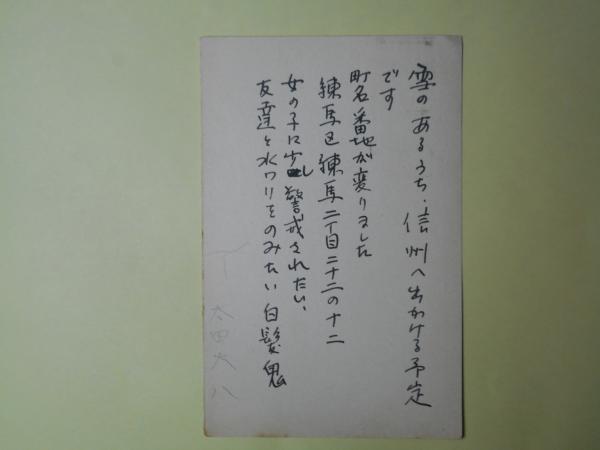 雪のあるうち、信州へ出かける予定
です
町名番地が変りました
練馬区練馬二丁目二十二の十二
女の子に少し警戒されたい、
友達と水ワリをのみたい白髪鬼
太田大八